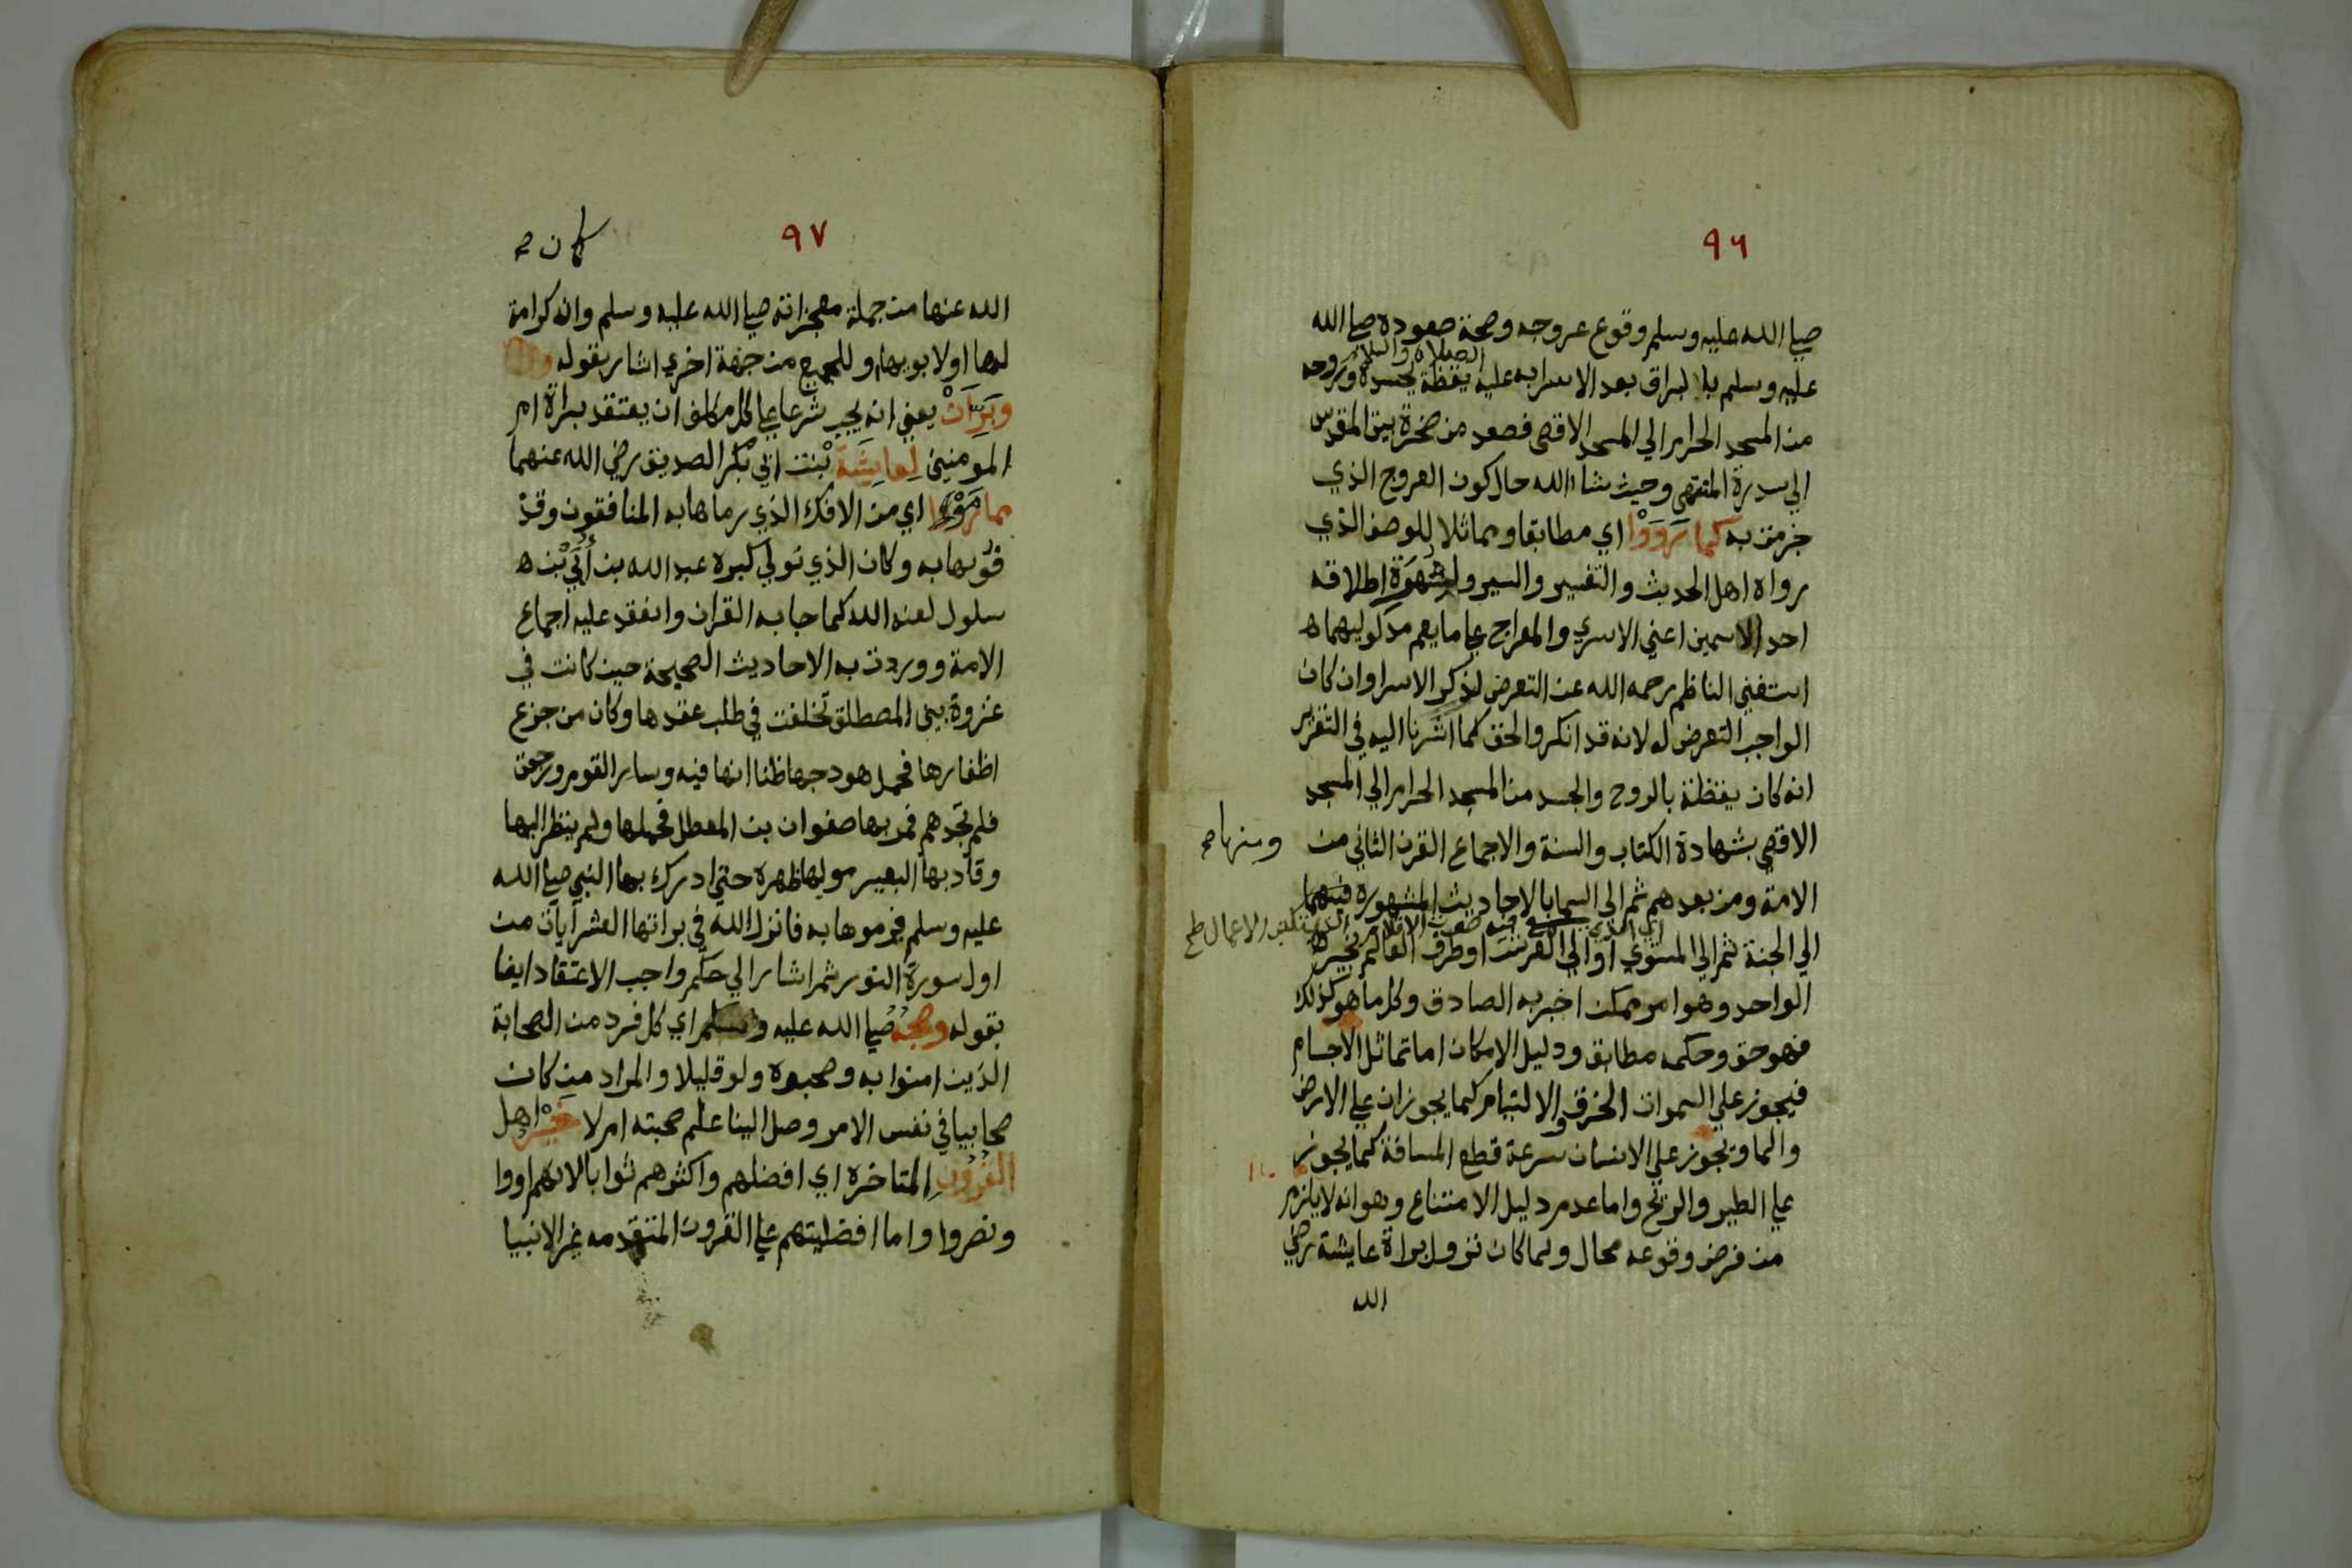 ٩٦
صلى الله عليه وسلم وقوع عروجه وصحة صعوده صلى الله
عليه وسلم بالبراق بعد الاسرا به عليه الصلاة والسلام يقظة بجسده وروحه
من المسجد الحرام الي المسجد الاقصى فصعد من صخرة بيت المقدس
الي سدرة المنتهى وحيث شاء الله حال كون العروج الذي
جزمت به كما رَوَوْا اي مطابقا ومماثلا للوصف الذي
رواه اهل الحديث والتفسير والسير ولشهرة اطلاقه
احد الاسمين اعني الاسري والمعراج علي ما يعم مدلوليهما
استغني الناظم رحمه الله عن التعرض لذكر الاسرا وان كان
الواجب التعرض له لانه قد انكر والحق كما اشرنا اليه في التقرير
انه كان يقظة بالروح والجسد من المسجد الحرام الي المسجد
الاقصي بشهادة الكتاب والسنة والاجماع القرن الثاني من
الامة ومن بعدهم ثم الي السما بالاحاديث المشهورة
ومنها صح
الي الجنة ثم الي المستوي او الي العرش او طرف العالم بخبر
الواحد وهو امر ممكن اخبر به الصادق وكل ما هو كذلك
فهو حق وحكمه مطابق ودليل الامكان اما تماثل الاجسام
فيجوز علي السموات الخرق والالتيام كما يجوزان علي الارض
والما ويجوز علي الانسان سرعة قطع المسافة كما يجوز
علي الطير والريح واما عدم دليل الامتناع وهو انه لا يلزم
من فرض وقوعه محال ولما كان نزول براة عايشة رضي
الله
٩٧
كان صح
الله عنها من جملة معجزاته صلي الله عليه وسلم وانه كرامة
لها او لابويها او للجميع من جهة اخري اشار بقوله
وبَرِّأَنْ يعني انه يجب شرعا علي كل مكلف ان يعتقد براة ام
المومنين لعايشة بنت ابي بكر الصديق رضي الله عنهما
مما رَمَوْا اي من الافك الذي رماها به المنافقون وقذ
فوها به وكان الذي تولي كبره عبد الله بن أُبَيّ بْن
سلول لعنه الله كما جا به القران وانعقد عليه اجماع
الامة ووردت به الاحاديث الصحيحة حين كانت في
غزوة بني المصطلق تخلفت في طلب عقدها وكان من جزع
اظفارها فحمل هودجها ظنا انها فيه وسار القوم ورجعت
فلم تجدهم فمر بها صفوان بن المعطل فحملها ولم ينظر اليها
وقاد بها البعير موليها ظهره حتي ادرك بها النبي صلي الله
عليه وسلم فرموها به فانزل الله في براتها العشر ايات من
اول سورة النور ثم اشار الي حكم واجب الاعتقاد ايضا
بقوله وصحبُه صلي الله عليه وسلم اي كل فرد من الصحابة
الذين امنوا به وصحبوه ولو قليلا والمراد من كان
صحابيا في نفس الامر وصل الينا علم صحبته ام لا خَيْرُ اهل
القُرُون المتاخرة اي افضلهم واكثرهم ثوابا لانهم اووا
ونصروا واما افضليتهم علي القرون المتقدمه غير الانبيا